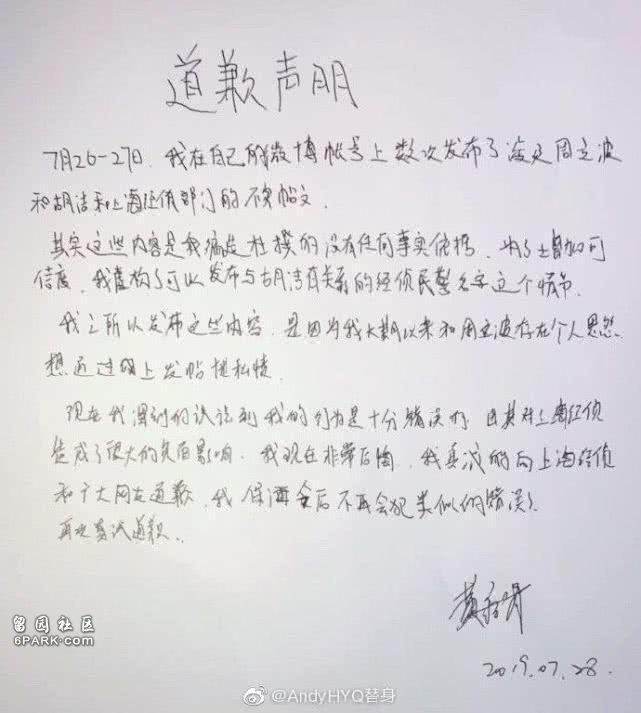 道歉声明
7月26-27日，我在自己的微博帐号上数次发布了涉及周立波
和胡洁和上海经侦部门的不实帖文．
其实这些内容是我编造杜撰的没有任何事实依据．为了增加可
信度，我虚构了可以发布与胡洁有关系的经侦民警名字这个情节．
我之所以发布这些内容，是因为我长期以来和周立波存在个人恩怨
想通过网上发帖泄私愤．
现在我深刻的认识到我的行为是十分错误的，尤其对上海经侦
造成了很大的负面影响．我现在非常后悔，我真诚的向上海经侦
和广大网友道歉，我保证今后不再会犯类似的错误，
再次真诚道歉．
2019.07.28
留园社区
6PARK.COM
@AndyHYQ替身